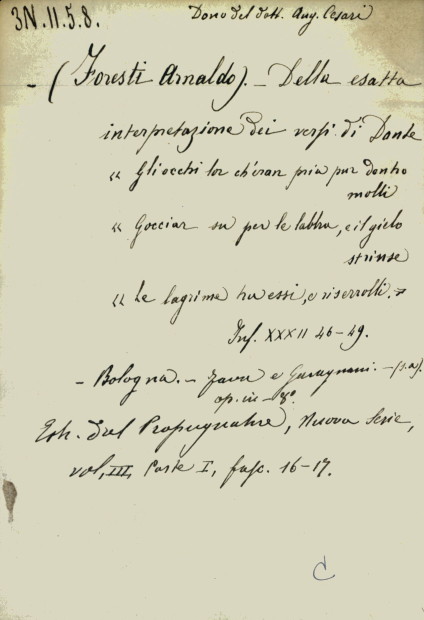 3N.II.5.8.
Dono del dott. Aug. Cesari
- (Foresti Arnaldo). - Della esatta
interpretazione dei versi di Dante
« Gli occhi lor ch'eran pria pur dentro
molli
« Gocciar su per le labbra, e il gielo
strinse
« Le lagrime tra essi, e riserrolli. »
Inf. XXXII 46-49.
- Bologna. - Zavu e Garagnani. - (s.a).
op. in - 8°.
Estr. dal Propugnatore, Nuova Serie,
vol. III, Parte I, fasc. 16-17.
C